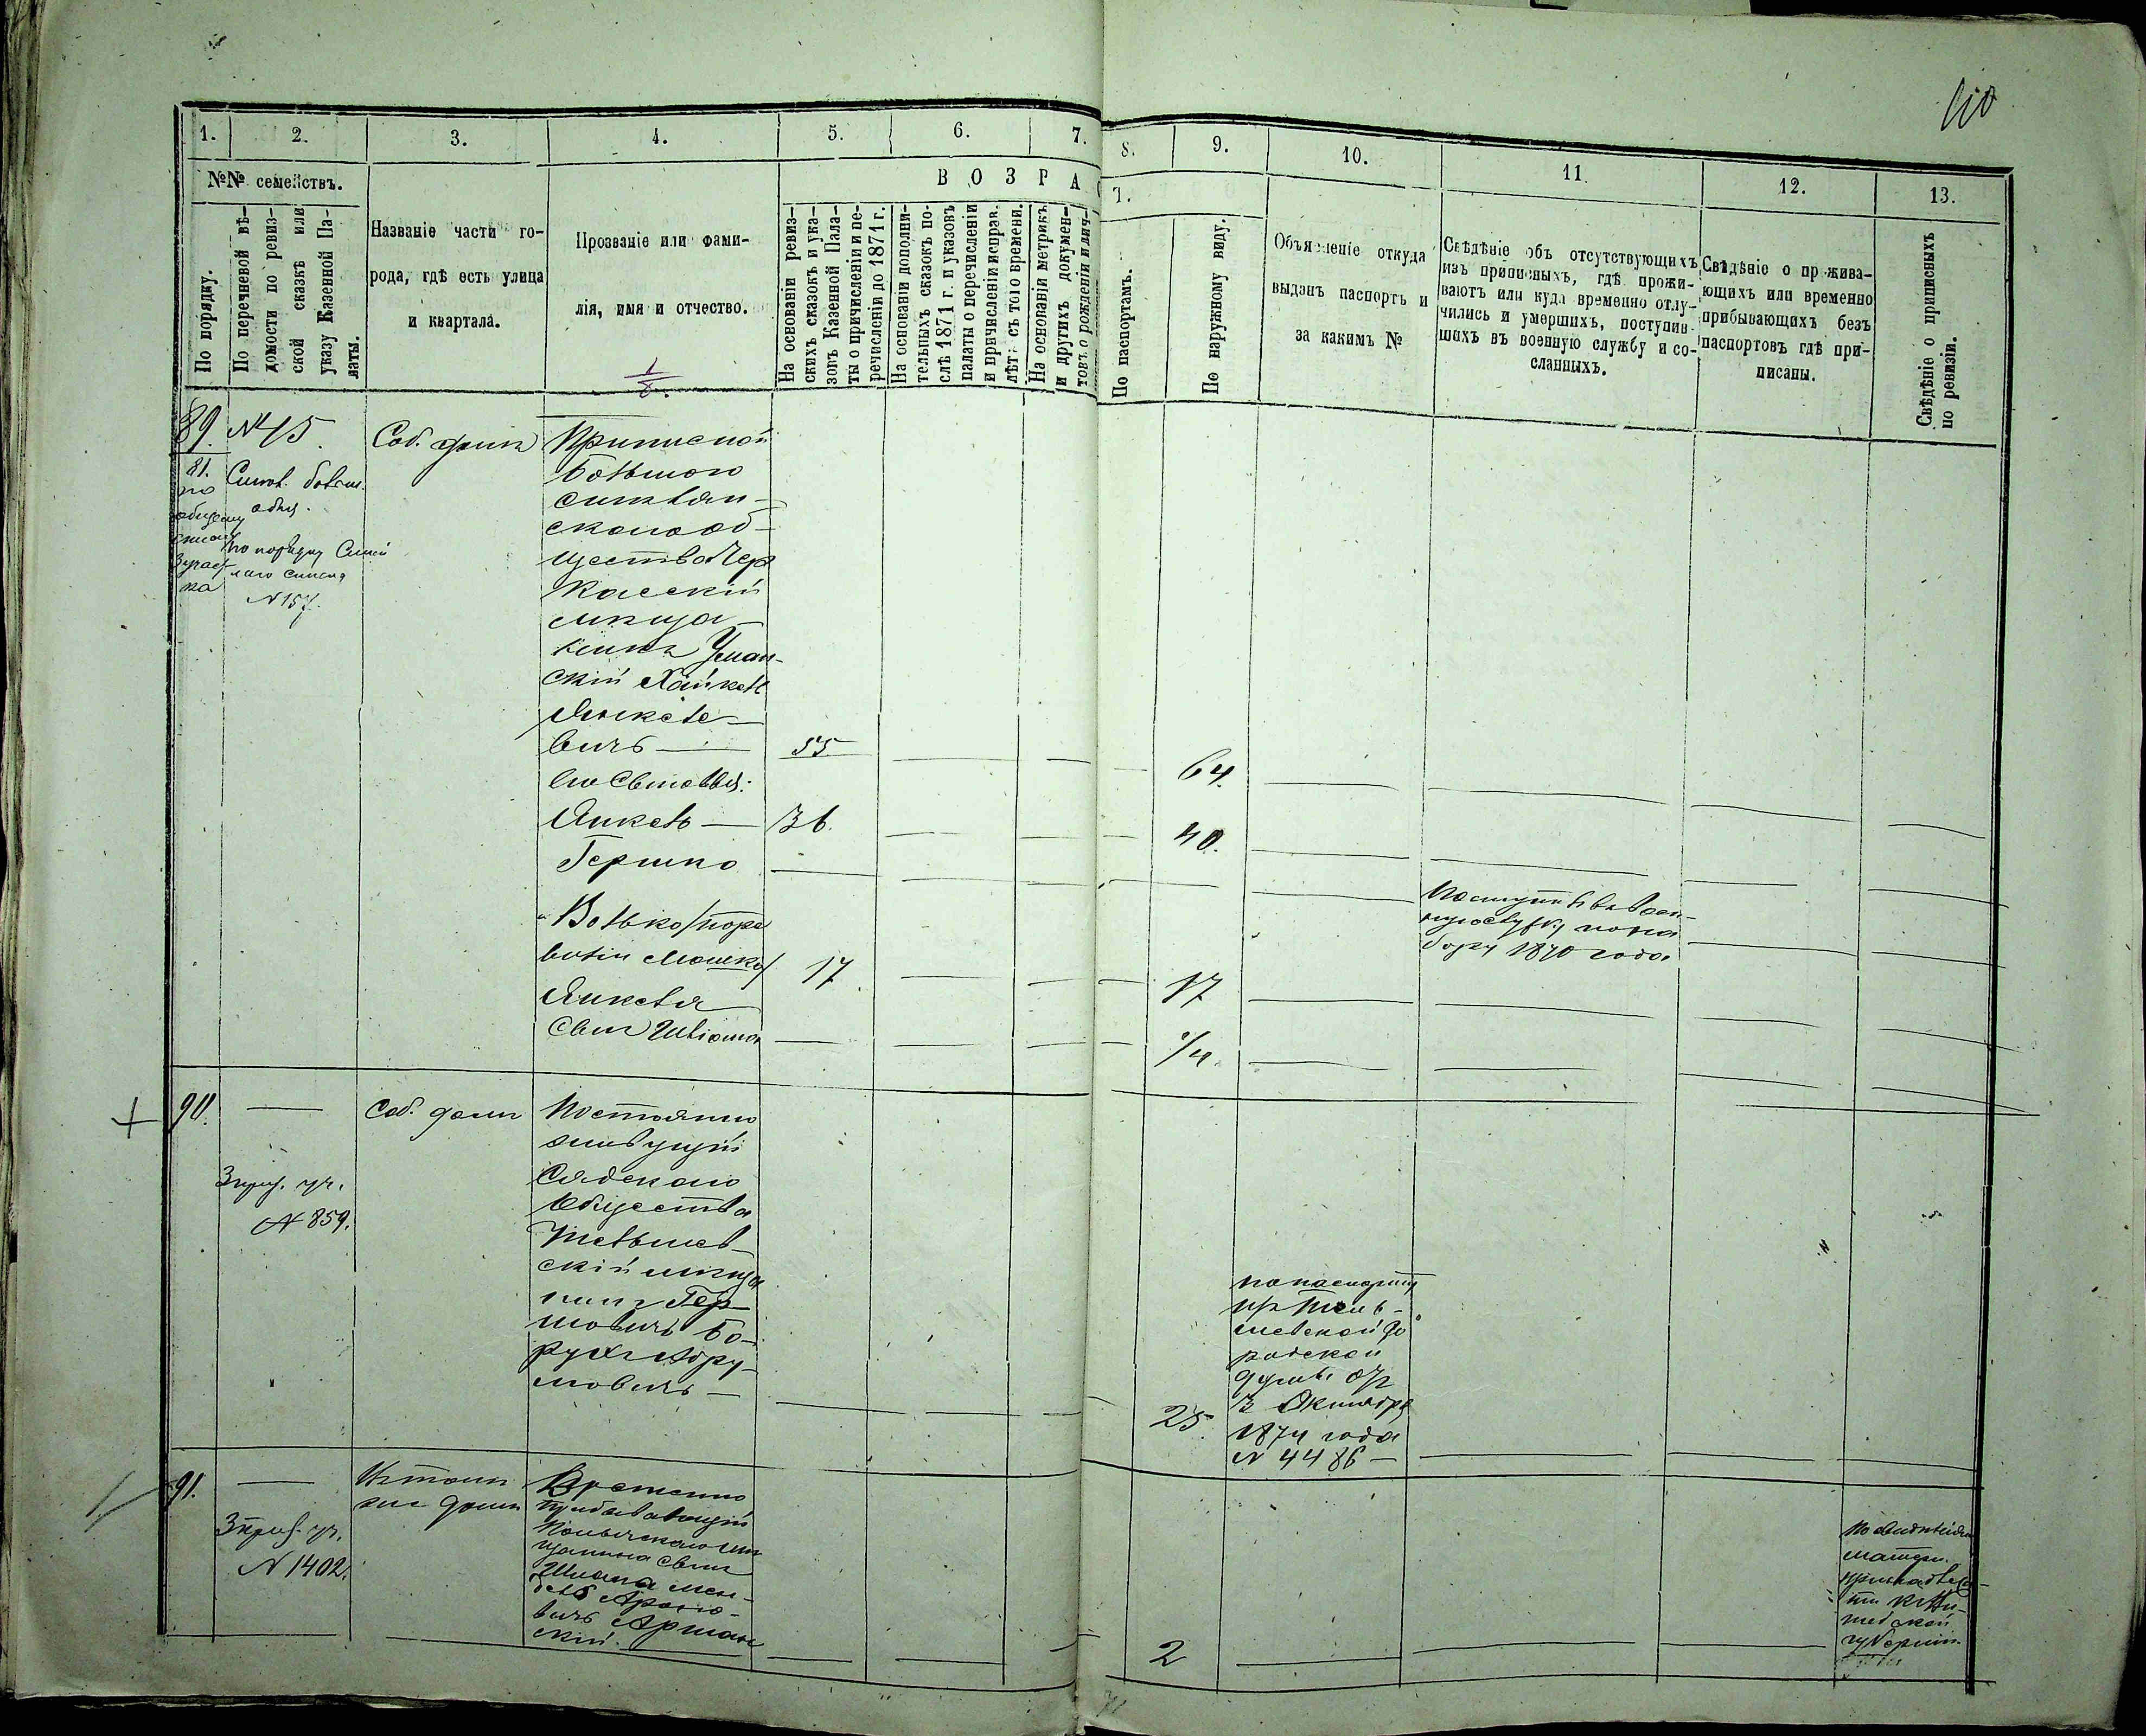 110
1.
2.
3.
4.
5.
6.
7.
8.
9.
10.
11.
12.
13.
№№ семействъ.
ВОЗРА
Т.
По порядку.
По перечневой вѣ-
домости по ревиз-
ской сказкѣ или
указу Казенной Па-
латы.
Названіе части го-
рода, гдѣ есть улица
и квартала.
Прозваніе или фами-
лія, имя и отчество.
На основаніи ревиз-
скихъ сказокъ и ука-
зовъ Казенной Пала-
ты о причисленіи и пе-
речисленіи до 1871 г.
На основаніи дополни-
тельныхъ сказокъ по-
слѣ 1871 г. и указовъ
палаты о перечисленіи
и причисленіи исправ.
лѣтъ съ того времени.
На основаніи метрикъ
и другихъ докумен-
товъ о рожденіи и лич-
По паспортамъ.
По наружному виду.
Объясненіе откуда
выданъ паспортъ и
за какимъ №
Свѣдѣніе объ отсутствующихъ
изъ приписныхъ, гдѣ прожи-
ваютъ или куда временно отлу-
чились и умершихъ, поступив-
шихъ въ военную службу и со-
сланныхъ.
Свѣдѣніе о прожива-
ющихъ или временно
прибывающихъ безъ
паспортовъ гдѣ при-
писаны.
Свѣдѣніе о приписныхъ
по ревизіи.
89.
№ 15.
Соб. домъ
81.
по
общему
участ
ка
по порядку
№ 157.
Приписной
Большого
ского об-
щества Чер
касскій
мѣща-
нинъ Уман-
скій Хайкель
Янкеле-
вичъ
55
64.
Его сыновья:
Янкель
36.
40.
Гершко
Поступилъ въ воен-
ную службу по на
бору 1870 года
Волько /по ре
визіи Мошко/
17
17
Янкеля
сынъ
1/4.
90.
Соб. домъ
№ 859.
Постоянно
живущій
Сядскаго
Общества
Тельшев-
скій мѣща
нинъ Гер-
шовичъ Бо-
рухъ Абру-
мовичъ
25.
по паспорту
изъ Тель-
шевской го
родской
думы отъ
3 Октября
1874 года
№ 4486
91.
домъ
№ 1402.
Временно
пребывающій
щанина сынъ
Мен-
дель Ароно-
вичъ Аршан
скій.
2
матери
губерніи